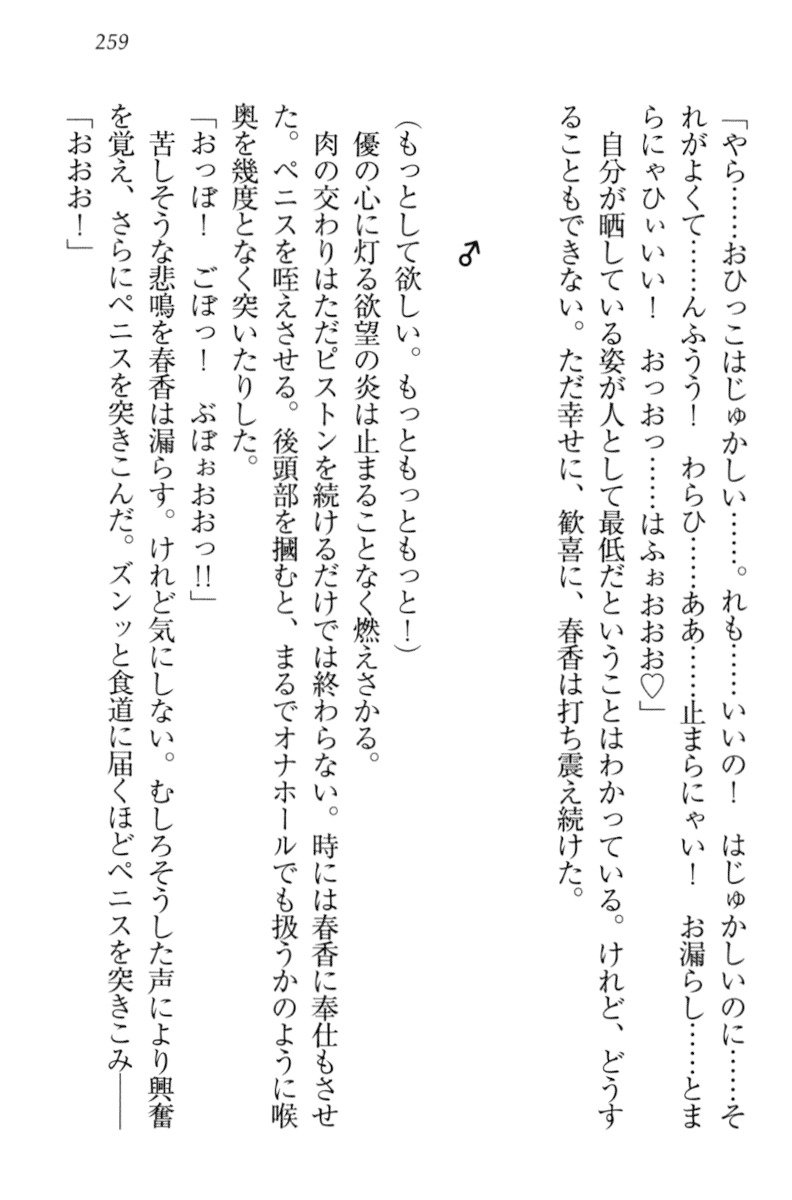 259
「やら……おひっこはじゅかしい……。れも……いいの！　はじゅかしいのに……そ
れがよくて……んふうう！　わらひ……ああ……止まらにゃい！　お漏らし……とま
らにゃひぃいい！　おっおっ……はふぉおおお♡」
　自分が晒している姿が人として最低だということはわかっている。けれど、どうす
ることもできない。ただ幸せに、歓喜に、春香は打ち震え続けた。
♂
（もっとして欲しい。もっともっともっと！）
　優の心に灯る欲望の炎は止まることなく燃えさかる。
　肉の交わりはただピストンを続けるだけでは終わらない。時には春香に奉仕もさせ
た。ペニスを咥えさせる。後頭部を摑むと、まるでオナホールでも扱うかのように喉
奥を幾度となく突いたりした。
「おっぼ！　ごぼっ！　ぶぼぉおおっ!!」
　苦しそうな悲鳴を春香は漏らす。けれど気にしない。むしろそうした声により興奮
を覚え、さらにペニスを突きこんだ。ズンッと食道に届くほどペニスを突きこみ――
「おおお！」